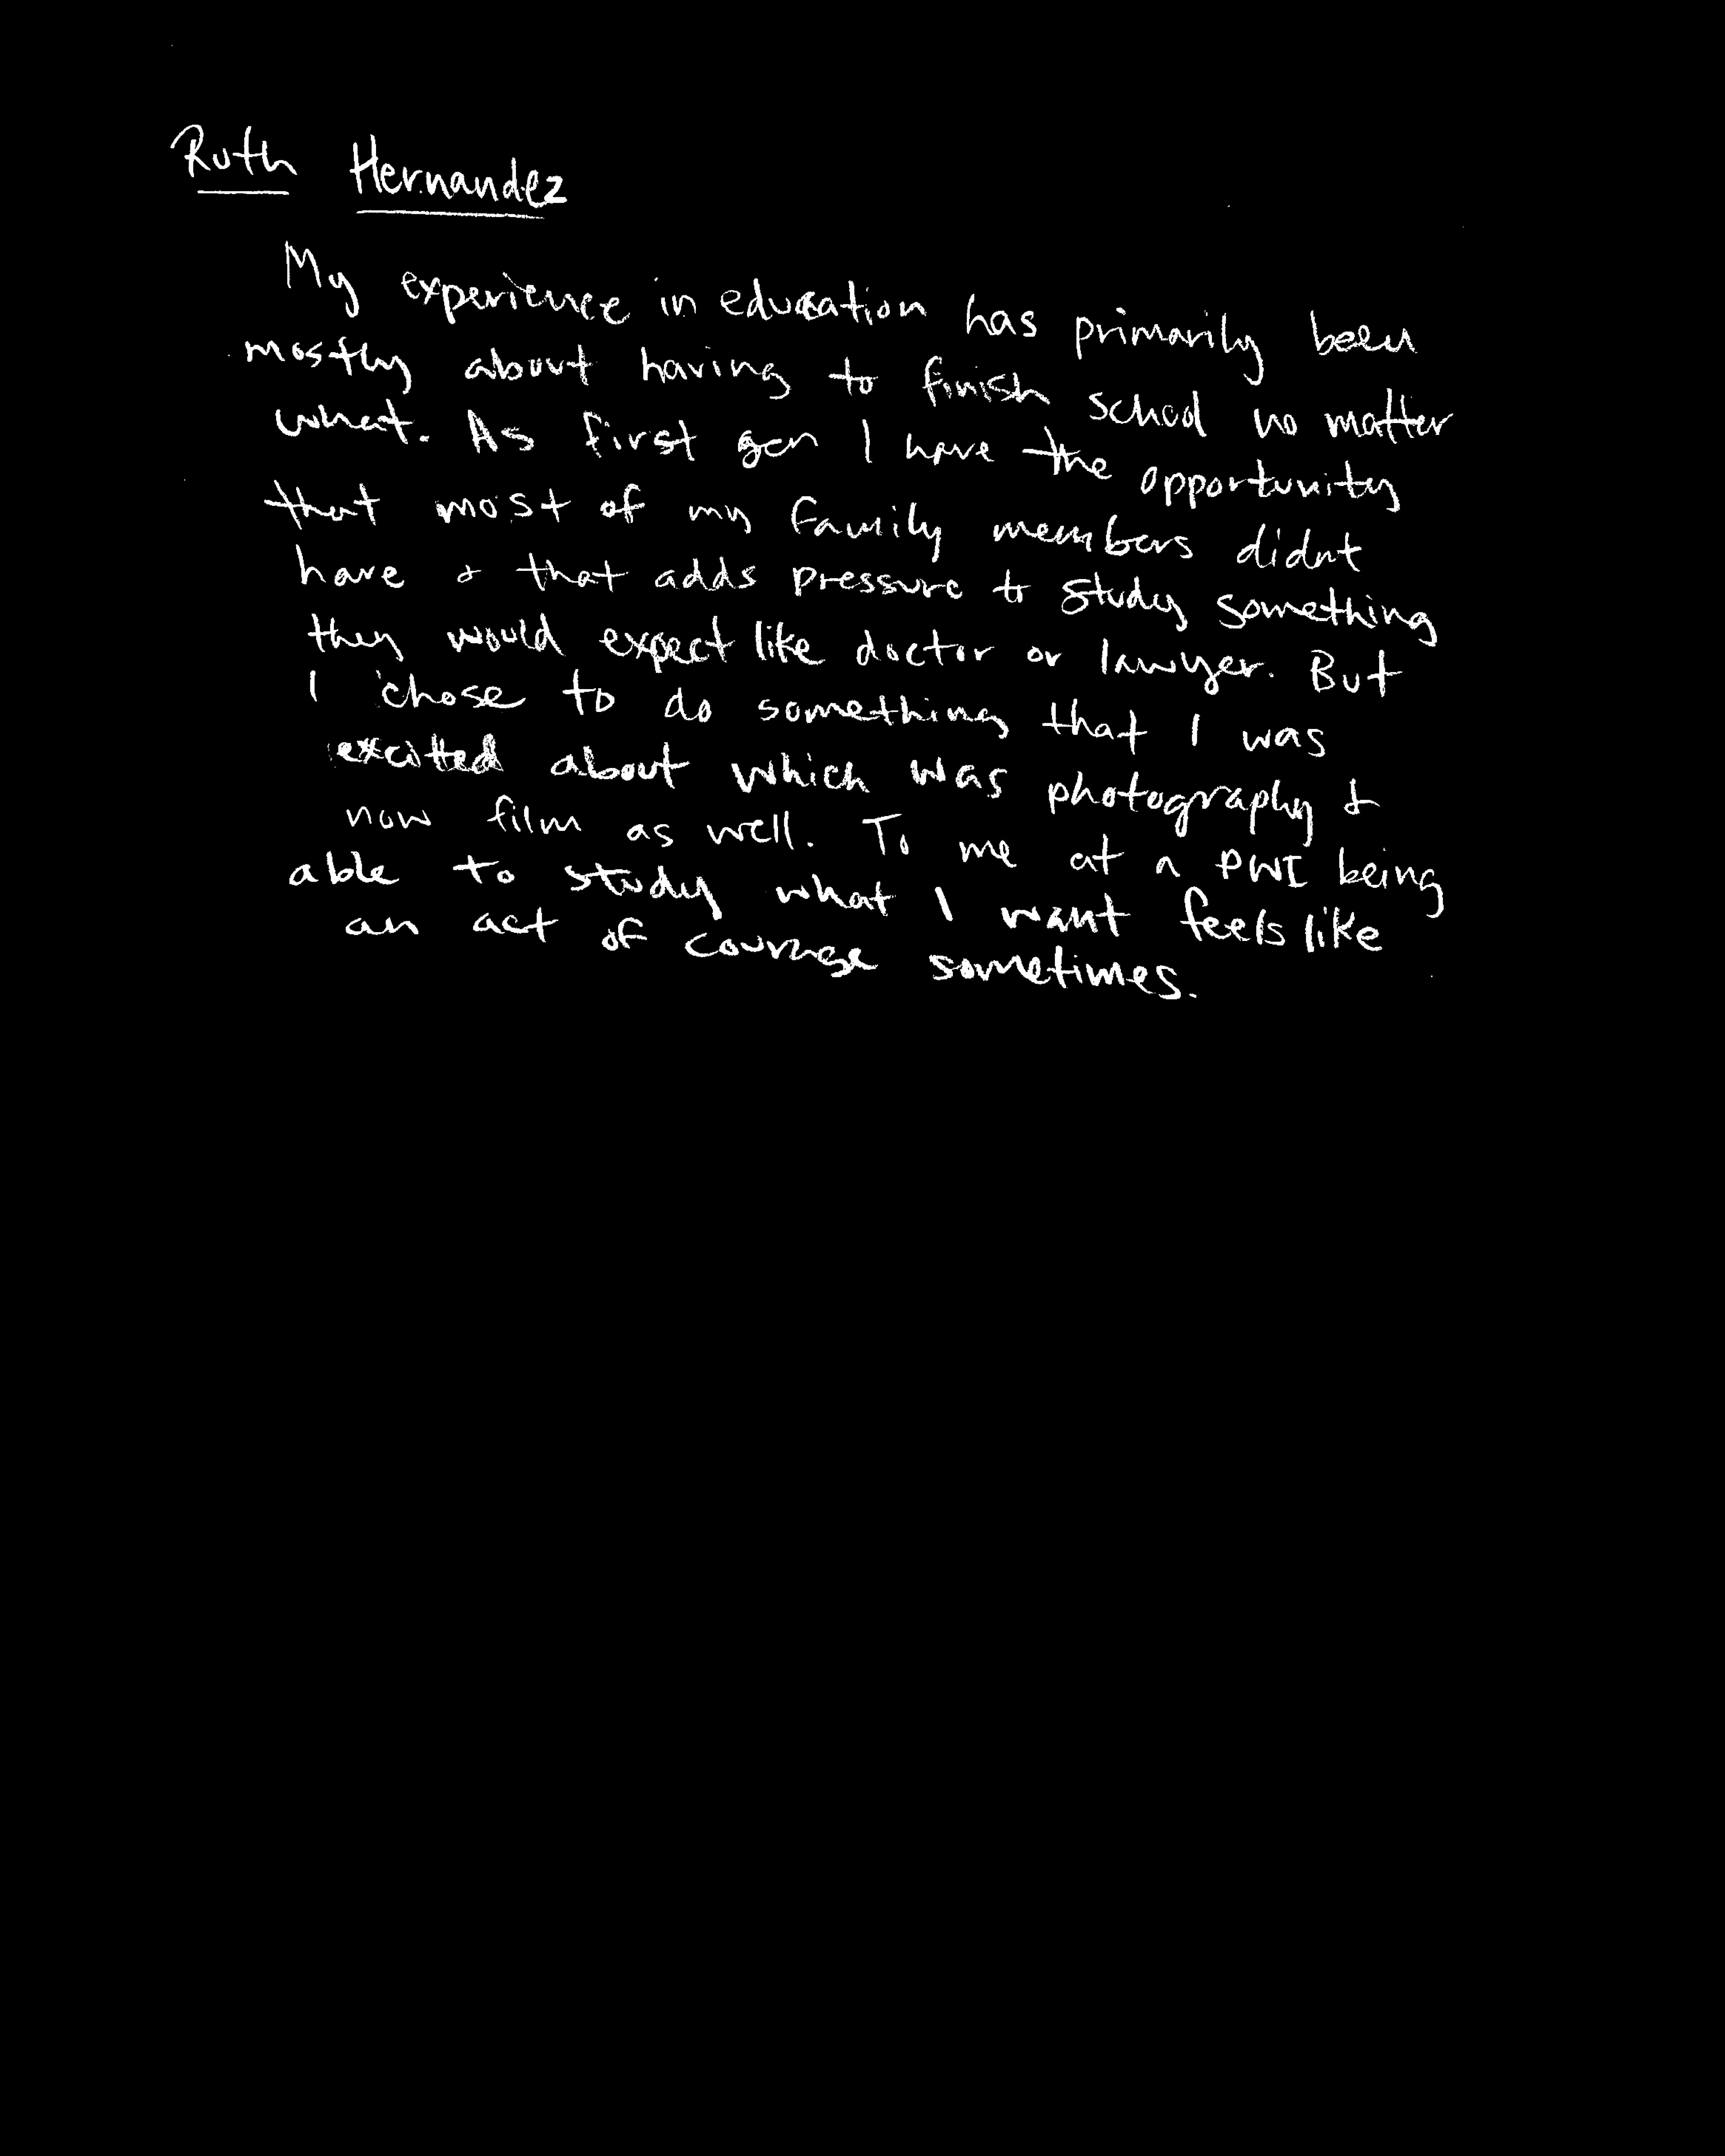 Ruth Hernandez
My experience in education has primarily been
mostly about having to finish school no matter
what. As first gen I have the opportunity
that most of my family members didnt
have & that adds pressure to study something
they would expect like doctor or lawyer. But
I chose to do something that I was
excitted about which was photography &
now film as well. To me at a PWI being
able to study what I want feels like
an act of courage sometimes.